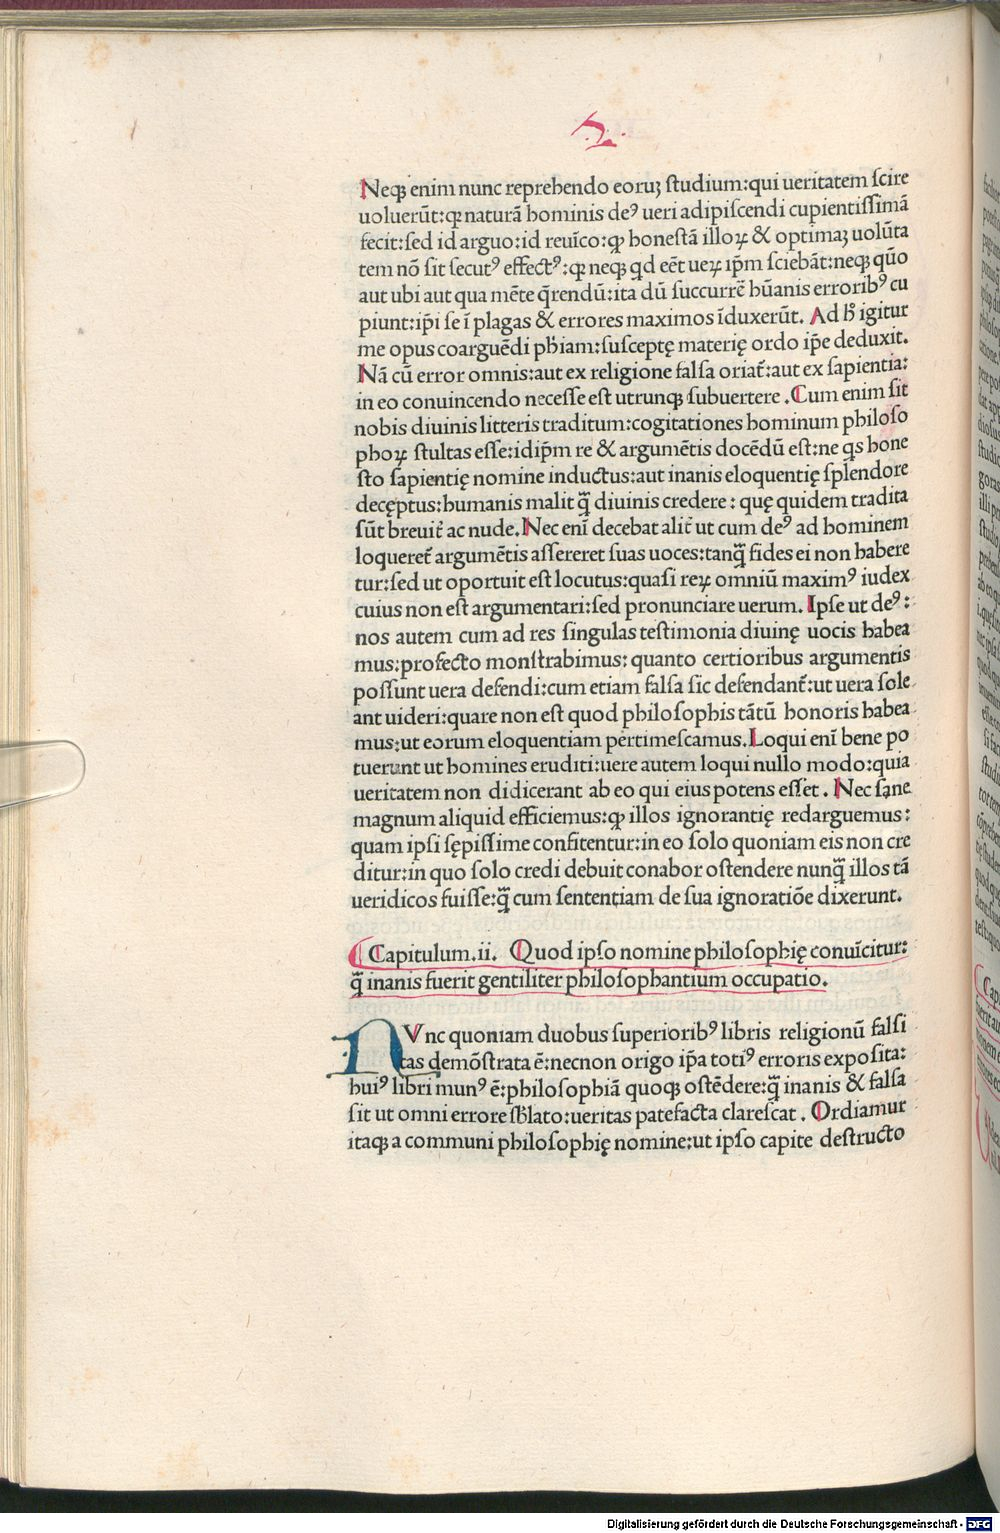 Neqꝫ enim nunc reprehendo eoruꝫ ſtudium:qui ueritatem ſcire
uoluerūt:qꝛ naturā hominis deꝰ ueri adipiſcendi cupientiſſimā
fecit:ſed id arguo:id reuīco:ꝙ honeſtā illoꝝ & optimaꝫ uolūta
tem nō ſit ſecutꝰ effectꝰ:qꝛ neqꝫ qd eēt ueꝝ ip̄m ſciebāt:neqꝫ quō
aut ubi aut qua mēte q̄rendū:ita dū ſuccurrē hūanis erroribꝰ cu
piunt:ip̄i ſe ī plagas & errores maximos īduxerūt. Ad h̄ igitur
me opus coarguēdi ph̄iam:ſuſceptę materię ordo ip̄e deduxit.
Nā cū error omnis:aut ex religione falſa oriat̄:aut ex ſapientia:
in eo conuincendo neceſſe eſt utrunqꝫ ſubuertere .Cum enim ſit
nobis diuinis litteris traditum:cogitationes hominum philoſo
phoꝝ ſtultas eſſe:idip̄m re & argumētis docēdū eſt:ne qs hone
ſto ſapientię nomine inductus:aut inanis eloquentię ſplendore
decęptus:humanis malit q̄̃ diuinis credere : quę quidem tradita
ſūt breuit̄ ac nude.Nec enī decebat alit̄ ut cum deꝰ ad hominem
loqueret̄ argumētis aſſereret ſuas uoces:tanq̄̃ fides ei non habere
tur:ſed ut oportuit eſt locutus:quaſi reꝝ omniū maximꝰ iudex
cuius non eſt argumentari:ſed pronunciare uerum. Ipſe ut deꝰ :
nos autem cum ad res ſingulas teſtimonia diuinę uocis habea
mus:profecto monſtrabimus: quanto certioribus argumentis
poſſunt uera defendi:cum etiam falſa ſic defendant̄:ut uera ſole
ant uideri:quare non eſt quod philoſophis tātū honoris habea
mus:ut eorum eloquentiam pertimeſcamus.Loqui enī bene po
tuerunt ut homines eruditi:uere autem loqui nullo modo:quia
ueritatem non didicerant ab eo qui eius potens eſſet . Nec ſane
magnum aliquid efficiemus:ꝙ illos ignorantię redarguemus:
quam ipſi ſępiſſime confitentur:in eo ſolo quoniam eis non cre
ditur:in quo ſolo credi debuit conabor oſtendere nunq̄̃ illos tā
ueridicos fuiſſe:q̄̃ cum ſententiam de ſua ignoratiōe dixerunt.
Capitulum.ii. Quod ipſo nomine philoſophię conuīcitur:
q̄̃ inanis fuerit gentiliter philoſophantium occupatio.
NVnc quoniam duobus ſuperioribꝰ libris religionū falſi
tas demōſtrata ē:necnon origo ip̄a totiꝰ erroris expoſita:
huiꝰ libri munꝰ ē:philoſophiā quoqꝫ oſtēdere:q̄̃ inanis & falſa
ſit ut omni errore ſb̄lato:ueritas patefacta clareſcat . Ordiamur
itaqꝫ a communi philoſophię nomine:ut ipſo capite deſtructo
Digitalisierung gefördert durch die Deutsche Forschungsgemeinschaft - DFG